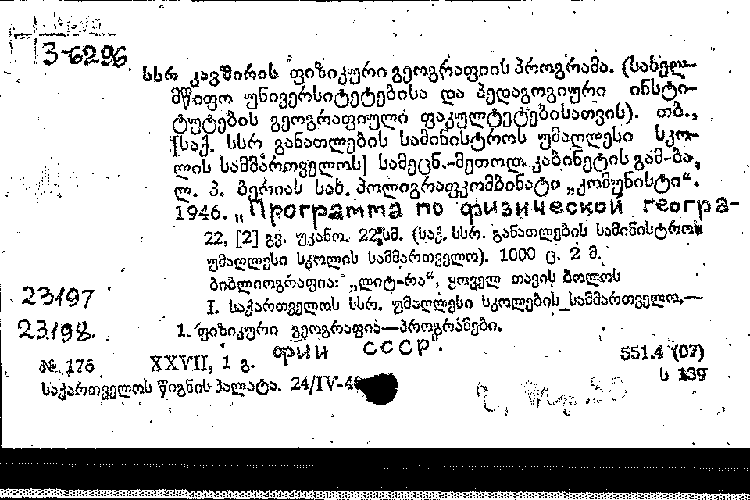 3-6296
სსრ კავშირის ფიზიკური გეოგრაფიის პროგრამა. (სახელ-
მწიფო უნივერსიტეტებისა და პედაგოგიური ინსტი-
ტუტების გეოგრაფიული ფაკულტეტებისათვის). თბ.,
[საქ. სსრ განათლების სამინისტროს უმაღლესი სკო-
ლის სამმართველოს] სამეცნ.-მეთოდ. კაბინეტის გამ-ბა,
ლ. პ. ბერიას სახ. პოლიგრაფკომბინატი „კომუნისტი“.
1946. „Программа по физической геогра-
22, [2] გვ. უკანო. 22 სმ. (საქ. სსრ. განათლების სამინისტროს
უმაღლესი სკოლის სამმართველო). 1000 ც. 2 მ.
ბიბლიოგრაფია: „ლიტ-რა“, ყოველ თავის ბოლოს
I. საქართველოს სსრ. უმაღლესი სკოლების სამმართველო.—
23197
1. ფიზიკური გეოგრაფია—პროგრამები.
23198.
фии СССР“.
№ 175 XXVII, 1 გ. 551.4 (07)
ს 139
საქართველოს წიგნის პალატა. 24/IV-4